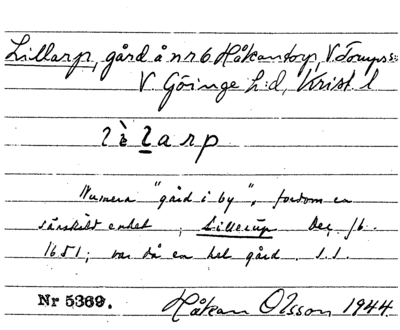 Lillarp, gård å nr 6 Håkantorp, V. Torups s:n
V Göinge h:d, Krist. l
lìlarp
Numera "gård i by", fordom en
särskild enhet, Lillerup Dec. jb.
1651; var då en hel gård.
Nr 5369. Håkan Olsson 1944.